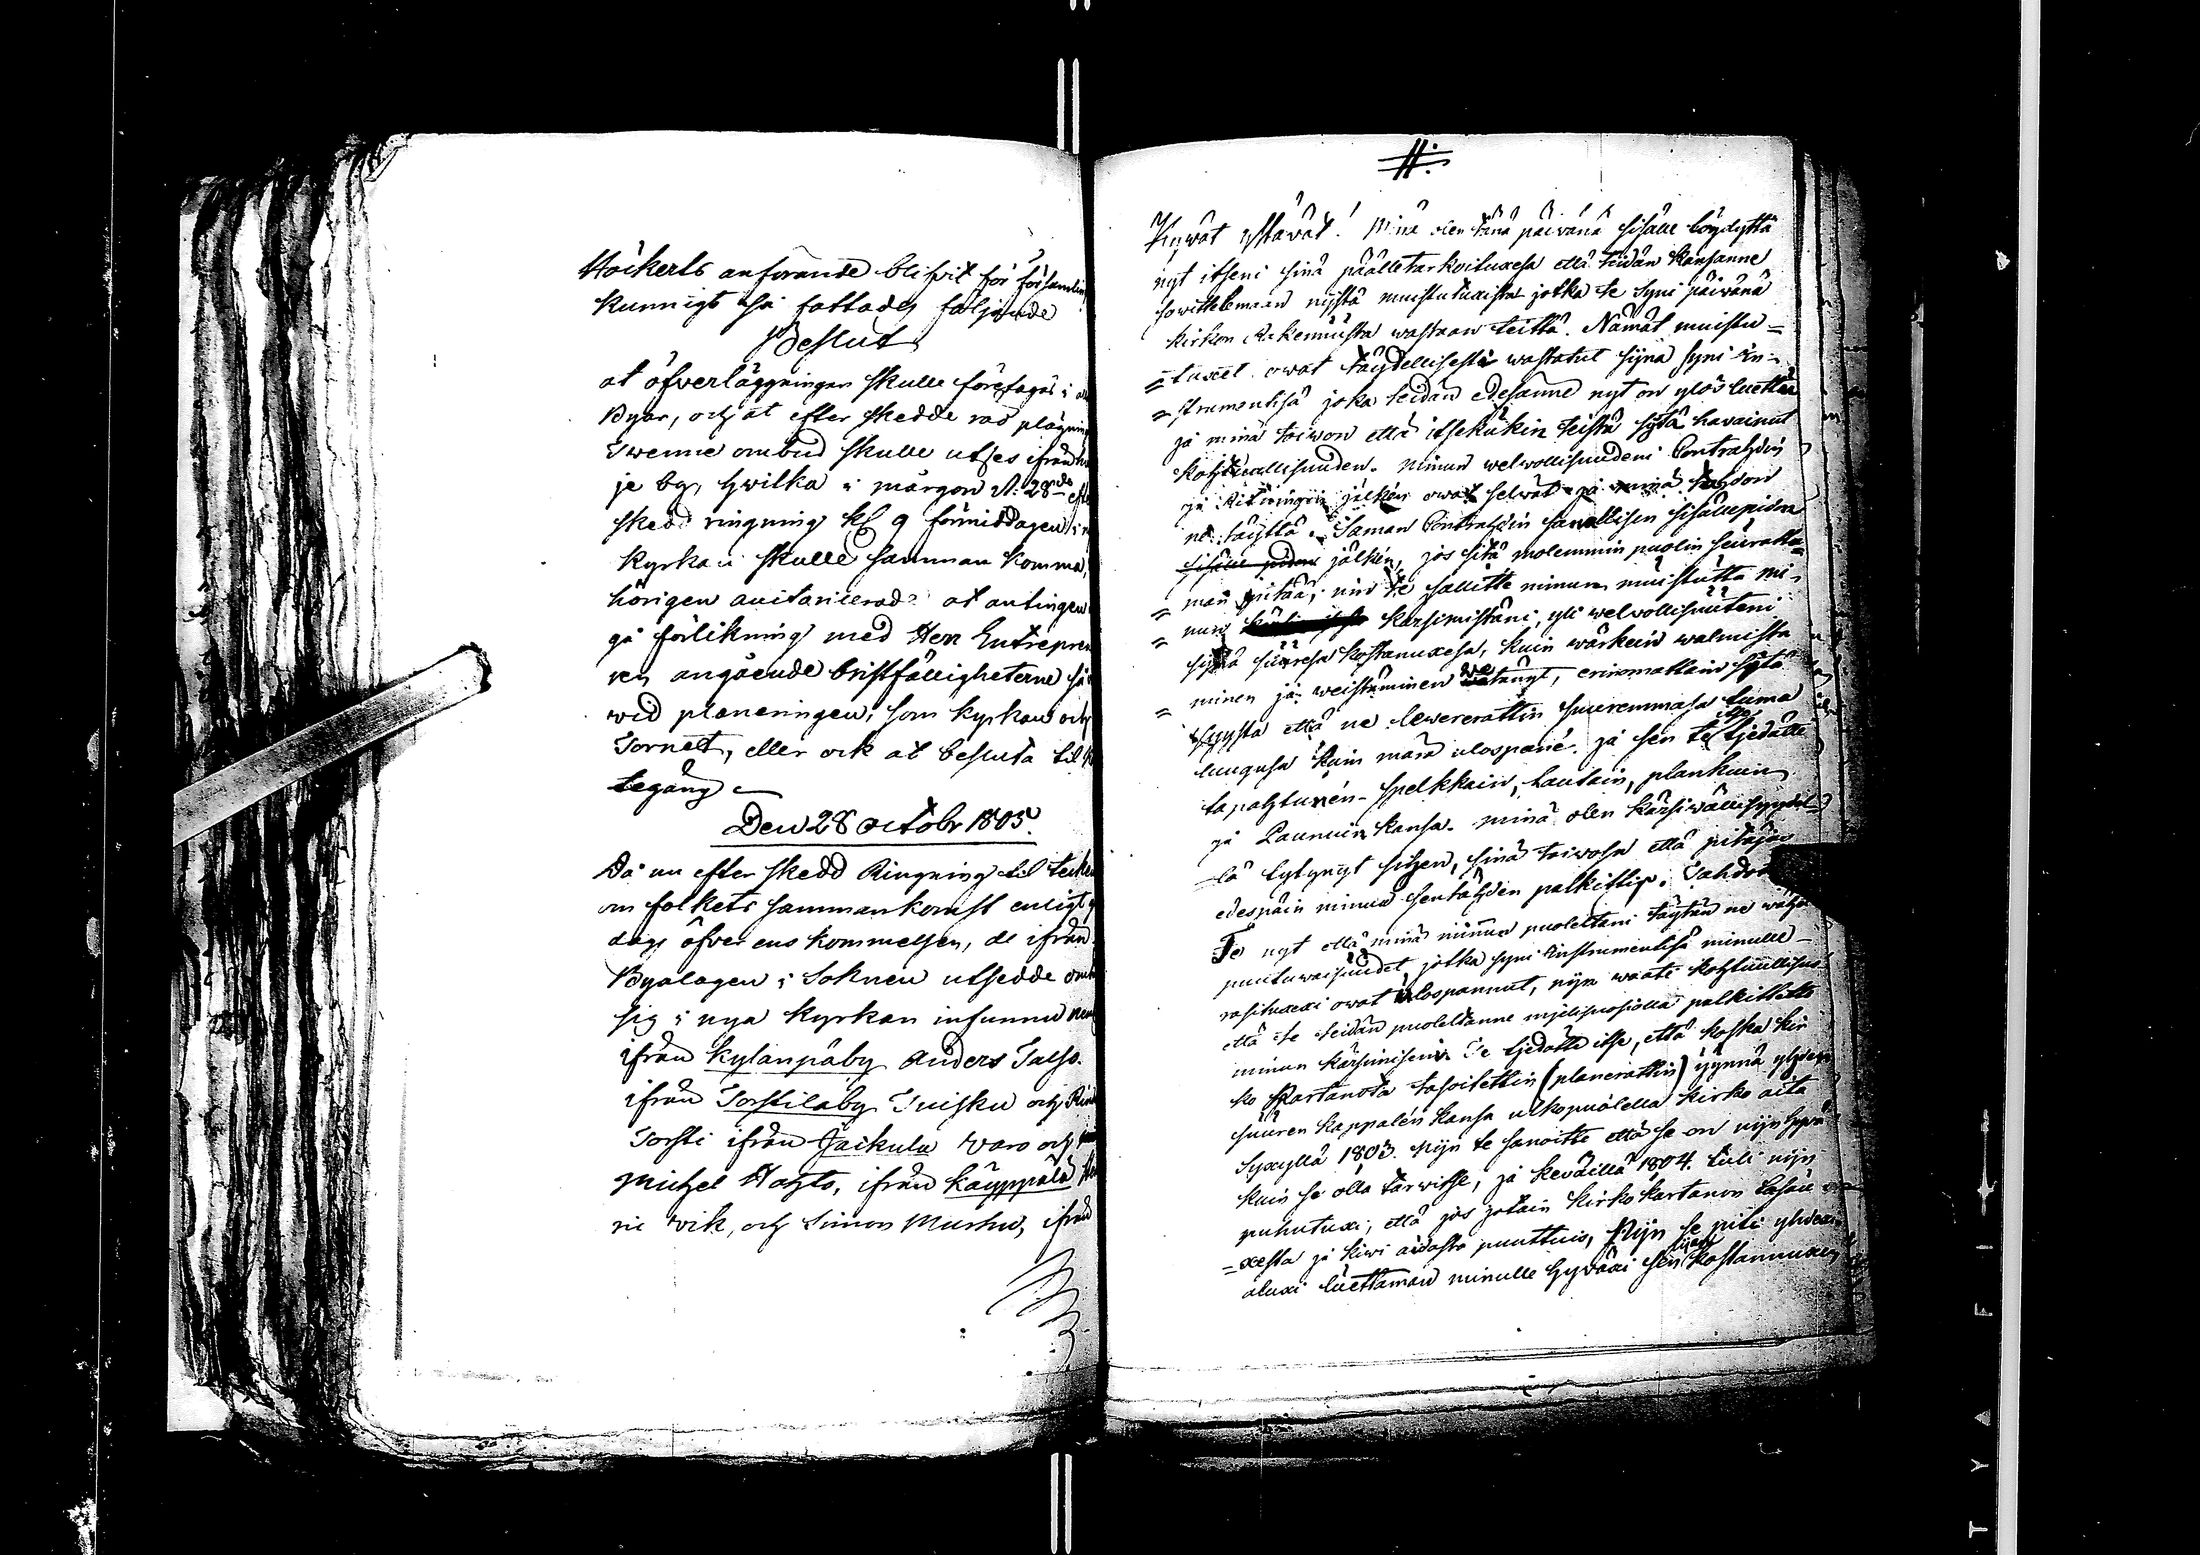 Höckerts anförande blifvit för församlin
kunnigt så fattades följande
Beslut
at öfverläggningen skulle företagas i
Byar, och at efter skedde råd plägning
Twenne ombud skulle utses ifrån
je by, hwilka i mårgon d. 28de
skedd ringning kl 9 förmiddagen i
kyrkan skulle samman komma,
hörigen auctoricerade at antingen
gå förlikning med Herr Entrepren
ren angående bristfälligheterne så
wid planeringen, som kyrkan och
Tornet, eller ock at besluta til
tegång
Den 28 octobr 1805.
Då nu efter skedd Ringning til tecken
om folkets sammankomst enligt
dags öfverens kommelsen, de ifrån
Byalagen i Soknen utsedde
sig i nya kyrkan infunno
ifrån kylänpäby Anders Talso.
ifrån Torstilaby Tuisku och
Torsti ifrån Jaikula Waro och
Michel Hahto, ifrån käyppälä
ric wik, och Simon Murhu, ifrån
#.
Hywät ystäwät! Minä olen tänä päivänä sisälle löydyttä
nyt itseni sinä päälletarkoituxesa että teidän kansanne
sowittelemaan nijstä muistutuxista jotka te Syni päivänä
kirkon Rakennusta wastaan teittä. Nämät muistu=
=tuxet owat täydellisesti wastatut sijnä syni in-
=strumentisä joka teidän edesänne nyt on ylös luettu
ja minä toiwon että itsekukin teistä sijtä havainut
kohtuullisuuden. Minun welwollisuudeni Contrahdin
ja Ritningin jälken owat selwät ja minä tahdon
ne täyttä. Saman Contrahdin sanallisen sisällepidon
jälken, jos sitä molemmin puolin seuratta=
=man pitää, nin te sallitte minun muistutta mi=
=nun kärsimistäni, yli welwollisuuteni
sijnä suuresa kostanuxesa, kuin wärkein walmista
=minen ja weistäminen we tänyt, erinomattain sijtä
syystä että ne lewererattin suuremmasa tuma
luugusa kuin märä ulospane. ja sen te itse tjedätte
tapahtunen spelkkain, lautain, plankuin
ja Paanuin kansa. minä olen kärsiwällisyydel=
=lä tytynyt sihen, sinä toiwosa että pitäjäs
edespäin minun sentähden palkittis. Tahdot
Te nyt että minä minun puolestani täytän ne wähä
puutuwaisuudet, jotka syni Instrumentisä minulle
rasituxexi owat ulospannut, nijn waatii kohtuullisus
että te teidän puolestanne mjelisuosiolla palkittette
minun kärsimiseni. Te tjedätte itse, että koska kir
ko Kartanota tasoitettin (planerattin) ijynnä yhden
suuren kappalen kansa ulkopuolella kirko aita
Syxyllä 1803. Nijn te sanoitte että se on nijn hywä
kuin se olla tarwitse; ja kewäillä 1804. tuli nijn
puhutuxi, että jos jotain kirko kartanon tasau
=xesta ja kiwi aidasta puuttuis, Nijn se piti yhdexi
aluxi luettaman minulle hywäxi sen kostannuxen